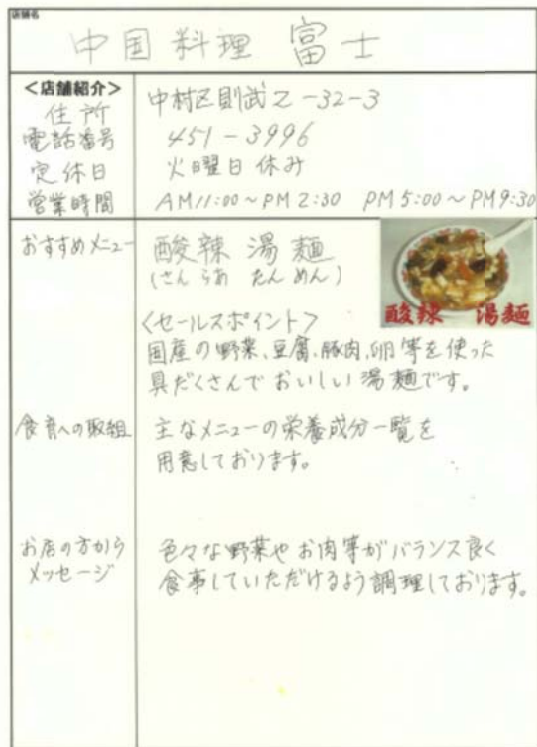 店舗名
中国料理 富士
<店舗紹介>
住所 中村区則武2-32-3
電話番号 451-3996
定休日 火曜日休み
営業時間 AM11:00~PM2:30 PM5:00~PM9:30
おすすめメニュー 酸辣湯麺
(さんらあ たんめん)
酸辣 湯麺
<セールスポイント>
国産の野菜、豆腐、豚肉、卵等を使った
具だくさんでおいしい湯麺です。
食育への取組 主なメニューの栄養成分一覧を
用意しております。
お店の方から 色々な野菜やお肉等がバランス良く
メッセージ 食事していただけるよう調理しております。